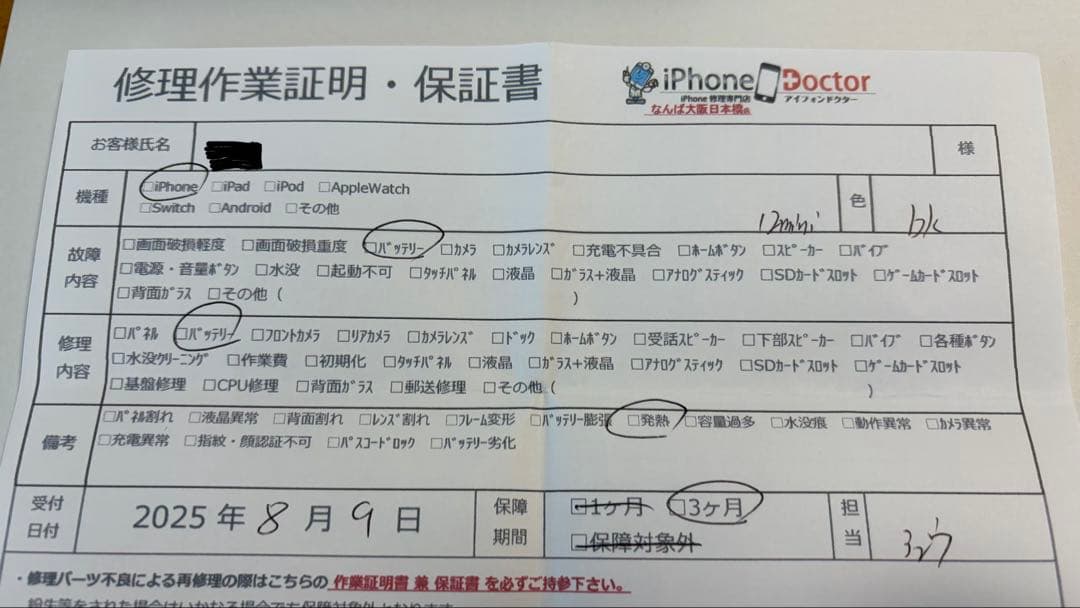 修理作業証明・保証書
iPhone Doctor
iPhone 修理専門店 アイフォンドクター
なんば大阪日本橋店
お客様氏名 様
機種 □iPhone □iPad □iPod □AppleWatch
□Switch □Android □その他 12mini 色 bk
故障内容 □画面破損軽度 □画面破損重度 □バッテリー □カメラ □カメラレンズ □充電不具合 □ホームボタン □スピーカー □バイブ
□電源・音量ボタン □水没 □起動不可 □タッチパネル □液晶 □ガラス+液晶 □アナログスティック □SDカードスロット □ゲームカードスロット
□背面ガラス □その他 ( )
修理内容 □パネル □バッテリー □フロントカメラ □リアカメラ □カメラレンズ □ドック □ホームボタン □受話スピーカー □下部スピーカー □バイブ □各種ボタン
□水没クリーニング □作業費 □初期化 □タッチパネル □液晶 □ガラス+液晶 □アナログスティック □SDカードスロット □ゲームカードスロット
□基盤修理 □CPU修理 □背面ガラス □郵送修理 □その他 ( )
備考 □パネル割れ □液晶異常 □背面割れ □レンズ割れ □フレーム変形 □バッテリー膨張 □発熱 □容量過多 □水没痕 □動作異常 □カメラ異常
□充電異常 □指紋・顔認証不可 □パスコードロック □バッテリー劣化
受付日付 2025 年 8 月 9 日 保障期間 □1ヶ月 □3ヶ月 担当
□保障対象外
・修理パーツ不良による再修理の際はこちらの 作業証明書 兼 保証書 を必ずご持参下さい。
紛失等をされた場合はいかなる場合でも保障対象外となります。